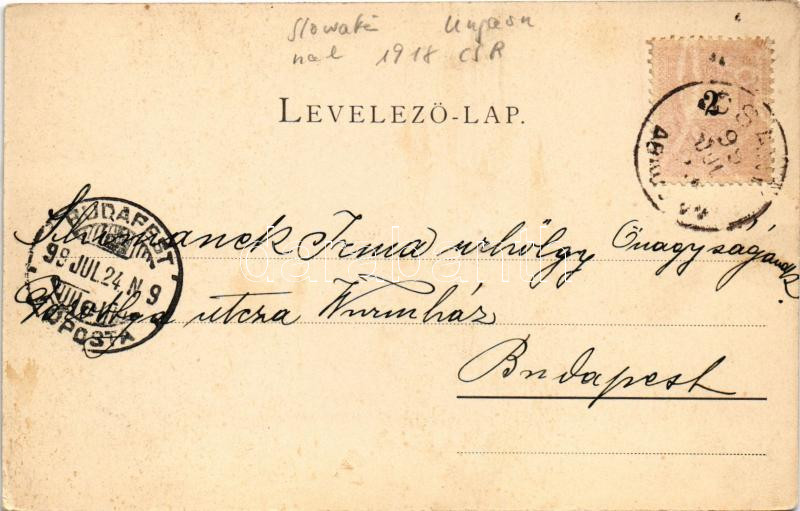 Slowakei Ungarn
nal 1918 CSR
LEVELEZÖ-LAP.
2
BUDAPEST
99 JUL. 24. N. 9
FŐPOSTA
Irma urhölgy Önagyságának
utcza Wurmház
Budapest